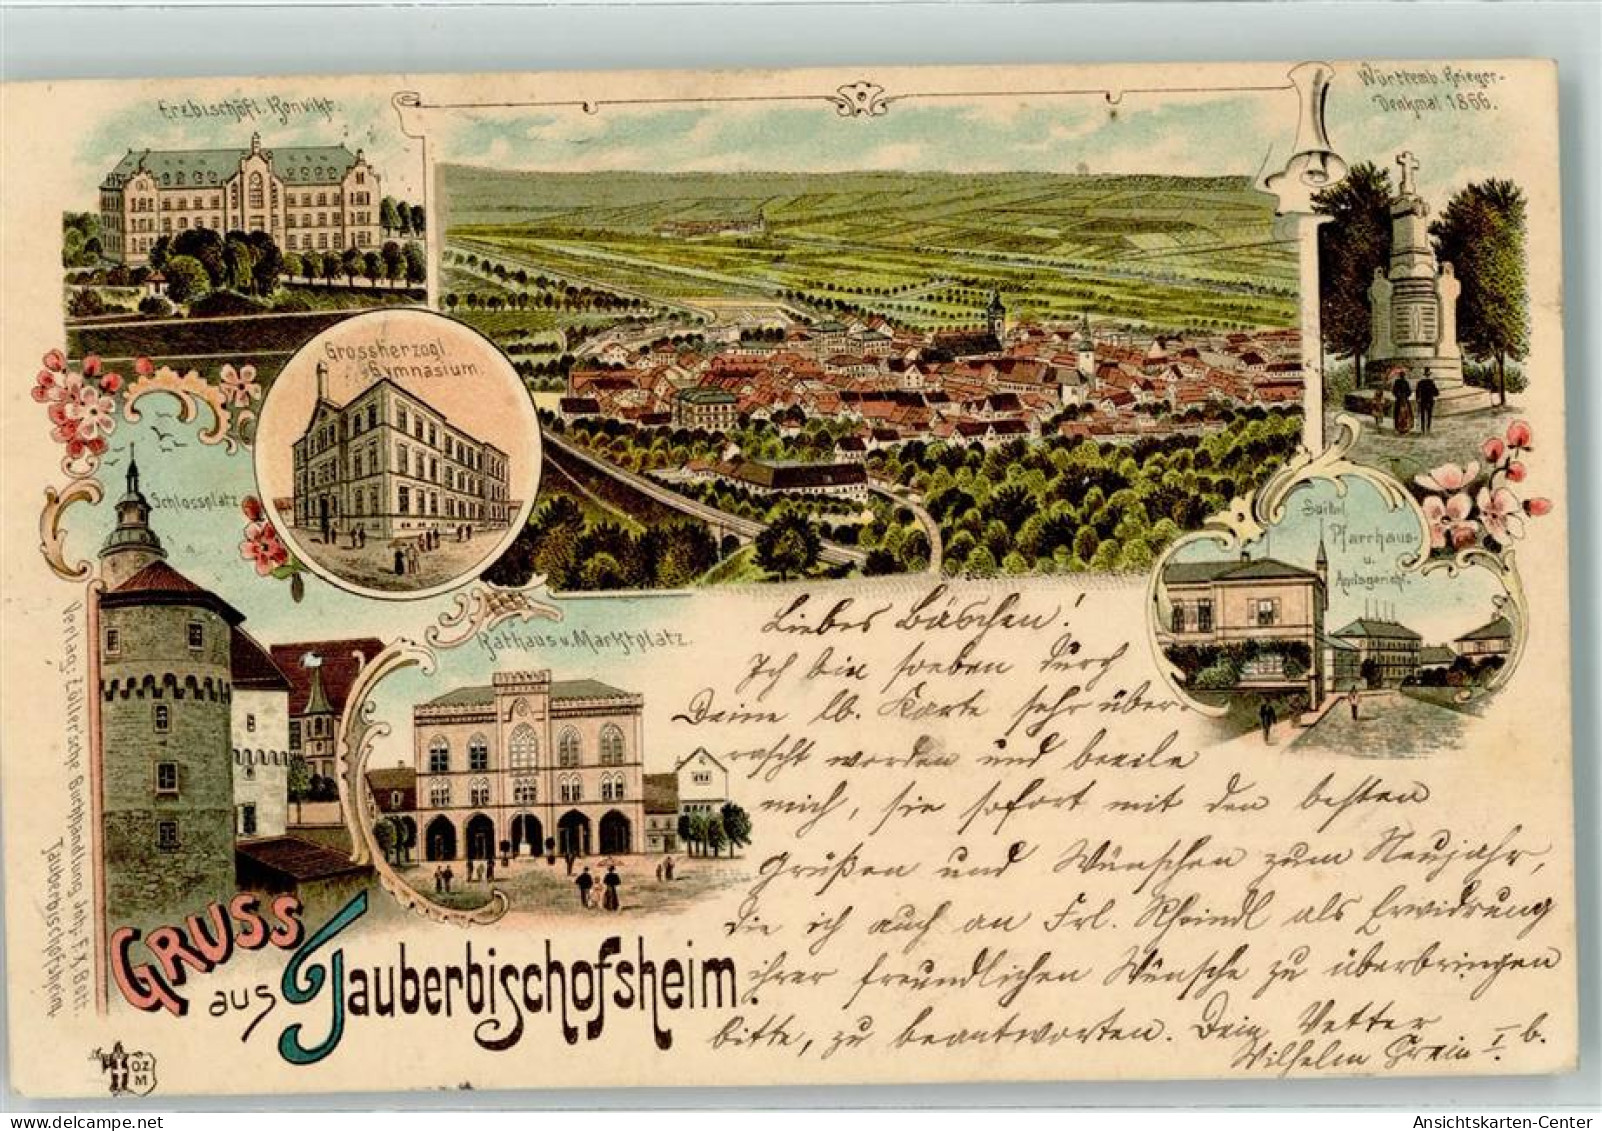 Erzbischöfl. Konvikt.
Württemb. Krieger-
Denkmal 1866.
Grossherzogl.
Gymnasium.
Schlossplatz
Pfarrhaus-
u.
Amtsgericht.
Rathaus u. Marktplatz.
Verlag: Zoller'sche Buchhandlung, Joh. F. X. Bott.
Tauberbischofsheim.
GRUSS
aus Tauberbischofsheim.
O.Z.
M
Liebes Bäschen!
Ich bin soeben durch
Deine lb. Karte sehr über-
rascht worden und beeile
mich, sie sofort mit den besten
Grüßen und Wünschen zum Neujahr,
die ich auch an Frl. Rheindl als Erwidrung
ihrer freundlichen Wünsche zu überbringen
bitte, zu beantworten. Dein Vetter
Wilhelm I. b.
Ansichtskarten-Center